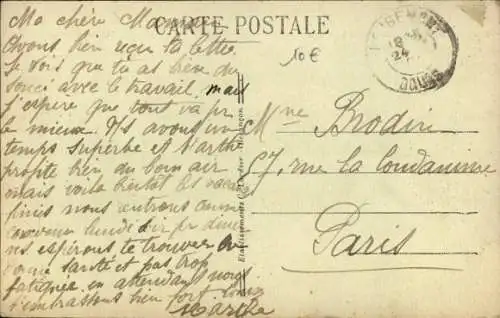 CARTE POSTALE
10€
Ma chère Maman
Avons bien reçu ta lettre
Je vois que tu as bien du
souci avec le travail, mais
j'espère que tout va pr
le mieux. Ns avons un
temps superbe et
profite bien du bon air
mais voilà bientôt les vacan
finies nous rentrons
lundi dir
ns espérons te trouver en
bonne santé et pas trop
fatiguée en attendant nous
t'embrassons bien fort
Marthe
Mme Brodin
57, rue la Condamine
Paris
Etablissements
DOUBS